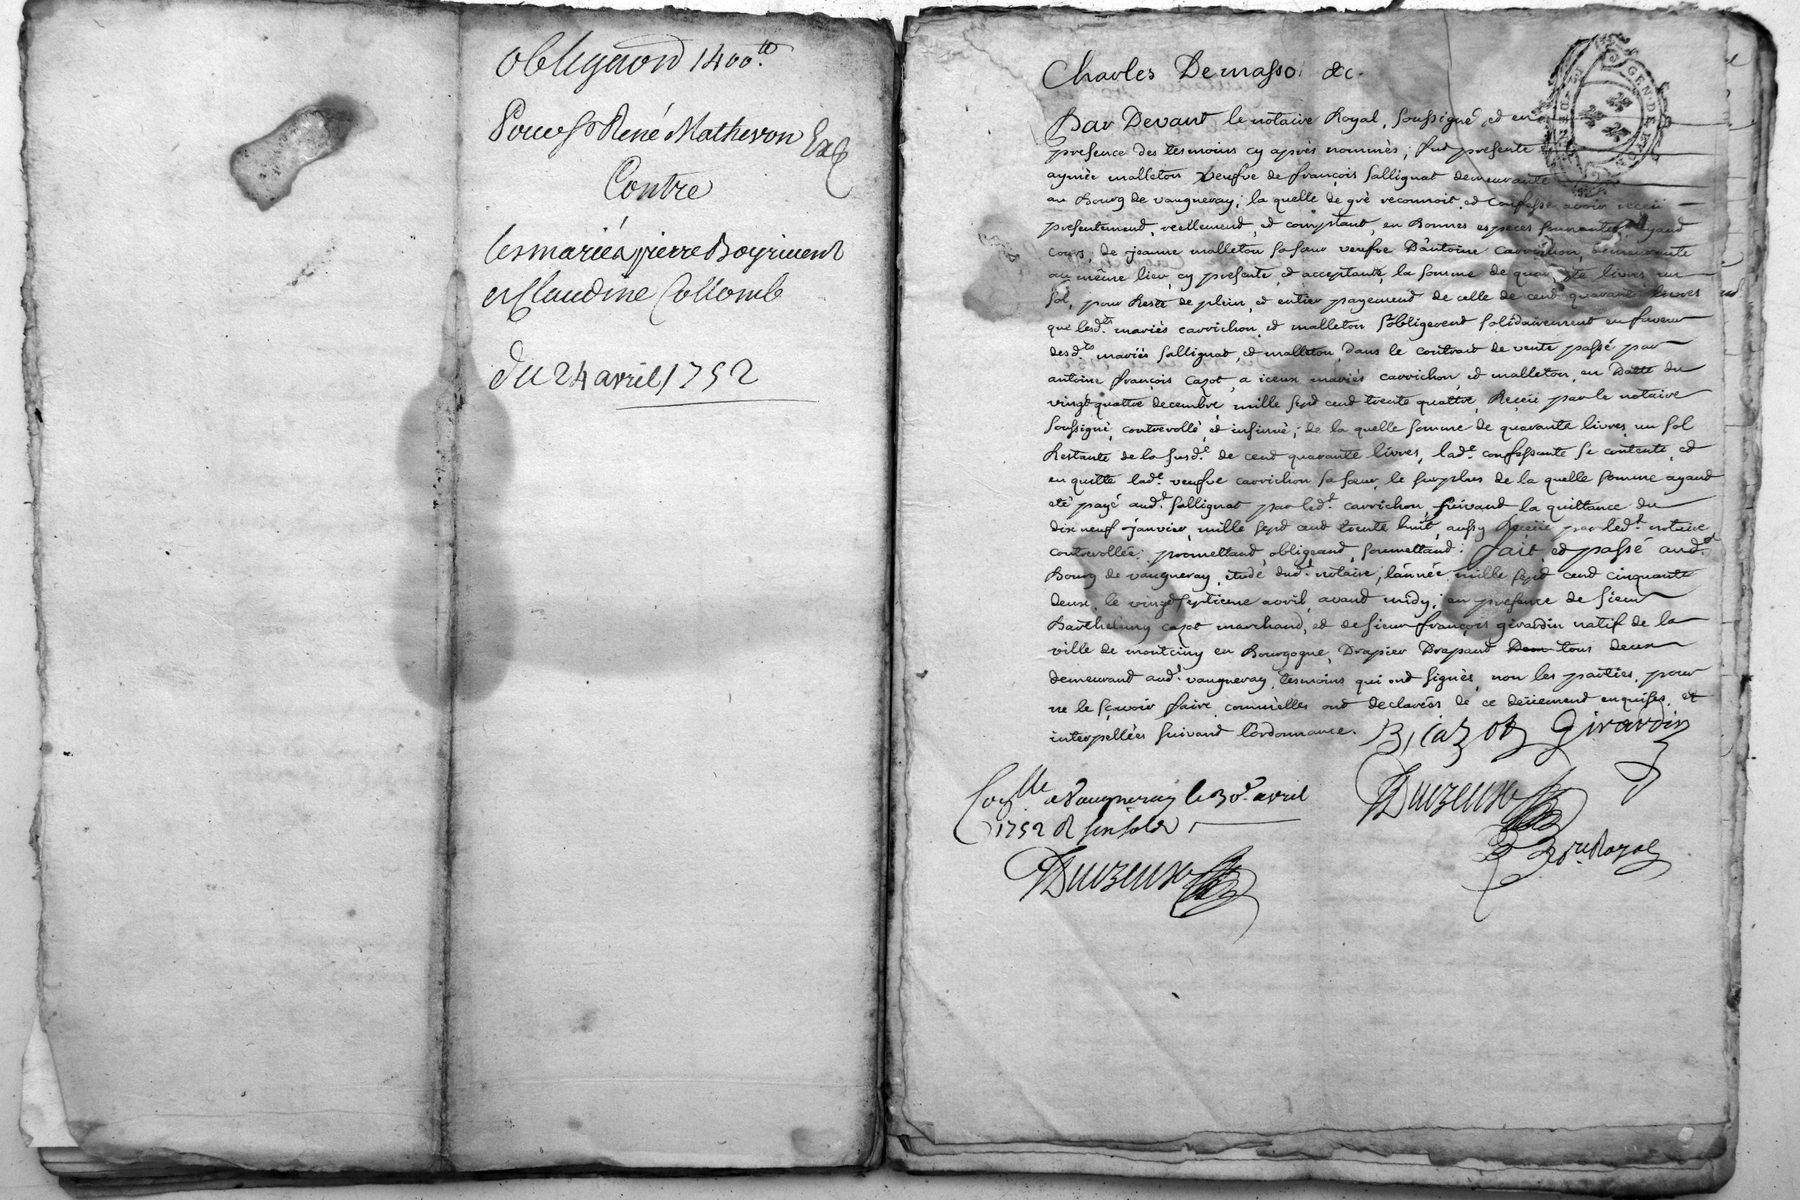 obligaõn 1400.tt
Pour Sr René Matheron
Contre
les mariés pierre Boyrivent
et Claudine Collomb
du 24 avril 1752
Charles De masso &c.
Par Devant le notaire Royal, soussigné, et en
presence des tesmoins cy après nommés; fut presente
aymée malleton veufve de françois sallignat demeurante
au Bourg de vaugneray; la quelle de gré reconnoit, et confesse avoir receü
presentement, reëllement, et comptant, en Bonnes especes sonnantes ayand
cours, de jeanne malleton sa sœur veufve D'antoine carrichon demeurante
au même lieu, cy presente, et acceptante, la somme de quarante livres un
sol, pour Reste de plein, et entier payement de celle de cent quarante livres
que lesd.ts mariés carrichon, et malleton s'obligerent solidairement en faveur
desd.ts mariés sallignat, et malleton, dans le contract de vente passé par
antoine françois cazot, a iceux mariés carrichon, et malleton, en Datte du
vingt quattre decembre mille sept cent trente quattre, Receü par le notaire
soussigné, controllé, et insinué; de la quelle somme de quarante livres un sol
Restante de la susd.e de cent quarante livres, lad.e confessante se contente, et
en quitte lad.e veufve carrichon sa sœur, le surplus de la quelle somme ayand
eté payé aud.t sallignat par led.t carrichon, suivand la quittance du
dix neuf janvier, mille sept cent trente huit, aussy Receüe par led.t notaire
controllée; promettand, obligeand, soumettand: fait et passé aud.t
Bourg de vaugneray, etude dud.t notaire, l'année mille sept cent cinquante
deux, le vingt septieme avril, avand midy; en presence de sieur
Barthelemy cazot marchand, et de sieur françois girardin natif de la
ville de montciny en Bourgogne, Drapier Drapand tous deux
demeurand aud.t vaugneray, tesmoins qui ont signés, non les parties, pour
ne le sçavoir faire comm'elles ont declarées de ce deüement enquises, et
interpellées suivand l'ordonnance.
B, Cazot Girardin
Coll.lle a Vaugneray le 30.e avril
1752 R six sols
Royal